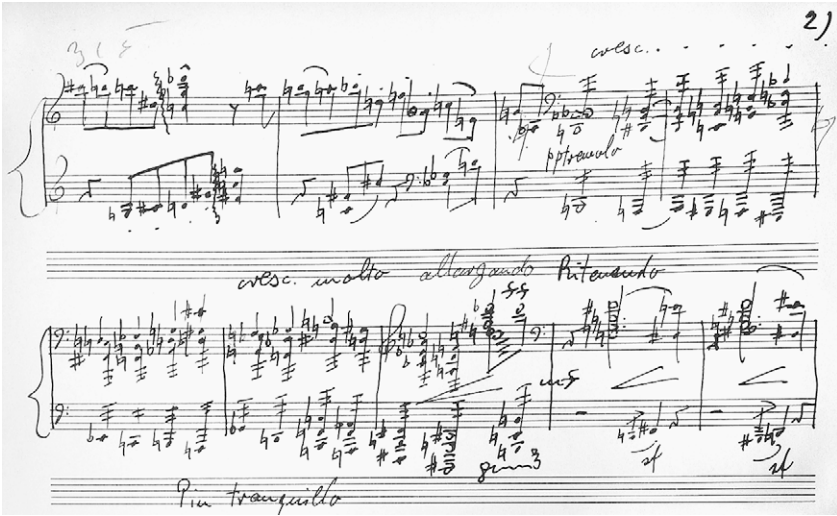 2)
cresc. . . . . .
pp tremolo
cresc. molto allargando Ritenendo
ff
mf
3
sf
sf
Piu tranquillo